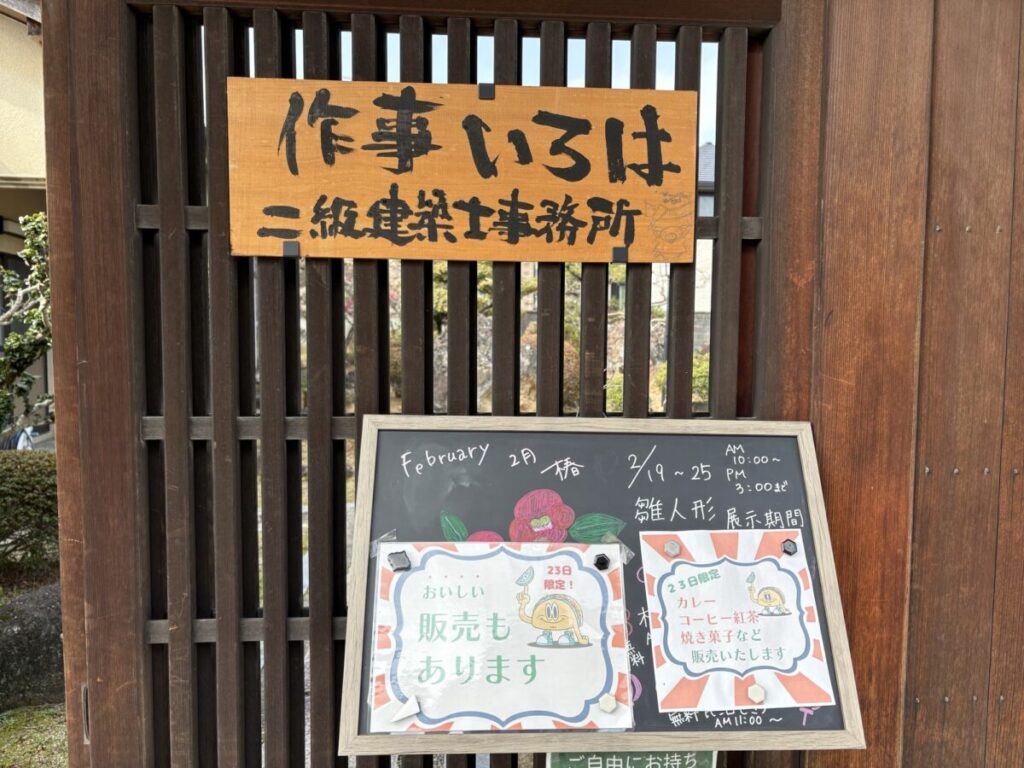 作事 いろは
二級建築士事務所
February 2月 椿
2/19~25
AM
10:00~
PM
3:00まで
雛人形 展示期間
23日
限定！
おいしい
販売も
あります
23日限定
カレー
コーヒー紅茶
焼き菓子など
販売いたします
無料
AM11:00~
ご自由にお持ち